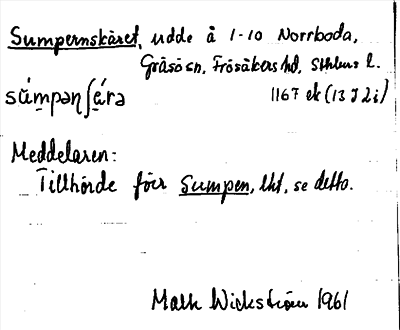 Sumpernskäret, udde å 1-10 Norrboda,
Gräsö sn, Frösåkers hd, Sthlms l.
sú̀mpəṇʃæ̀rə 1167 ek (13 J 2 i)
Meddelaren:
Tillhörde förr Sumpen, lht, se detta.
Math Wickström 1961